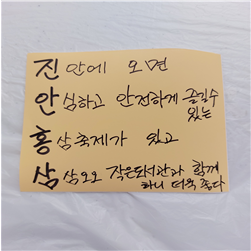 진안에 오면
안심하고 안전하게 즐길수 있는
홍삼축제가 있고
삼삼오오 작은도서관과 함께 하니 더욱 좋다